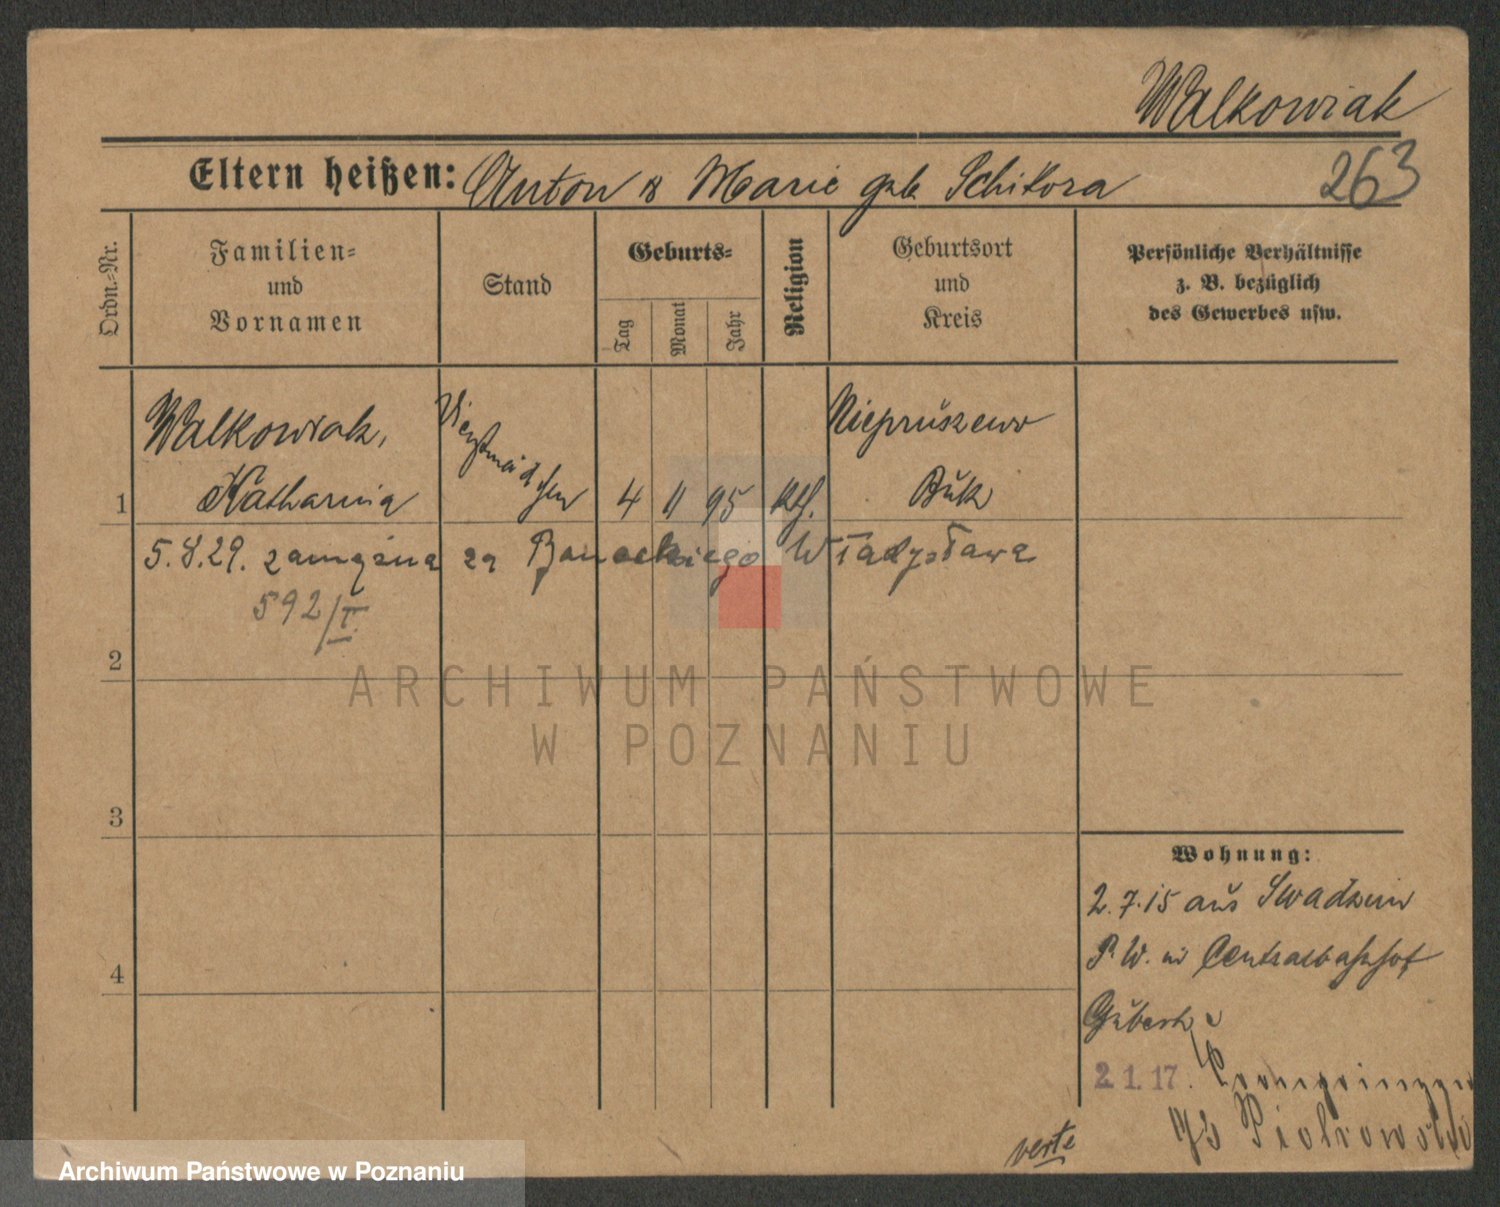 Walkowiak
Eltern heißen: Anton & Marie geb. Schikora
263
Ordn.-Nr.
Familien-
und
Vornamen
Stand
Geburts-
Tag
Monat
Jahr
Religion
Geburtsort
und
Kreis
Persönliche Verhältnisse
z. B. bezüglich
des Gewerbes usw.
1
Walkowiak,
Katharina
Dienstmädchen
4 11 95 kth.
Niepruszewo
Buk
5.8.29. zamężna za Banackiego Władysława
592/I
2
ARCHIWUM PAŃSTWOWE
W POZNANIU
3
4
Wohnung:
2.7.15 aus Swadzim
P.W. in Centralbahnhof
2.1.17. Kronprinzen
Piotrowski
verte
Archiwum Państwowe w Poznaniu